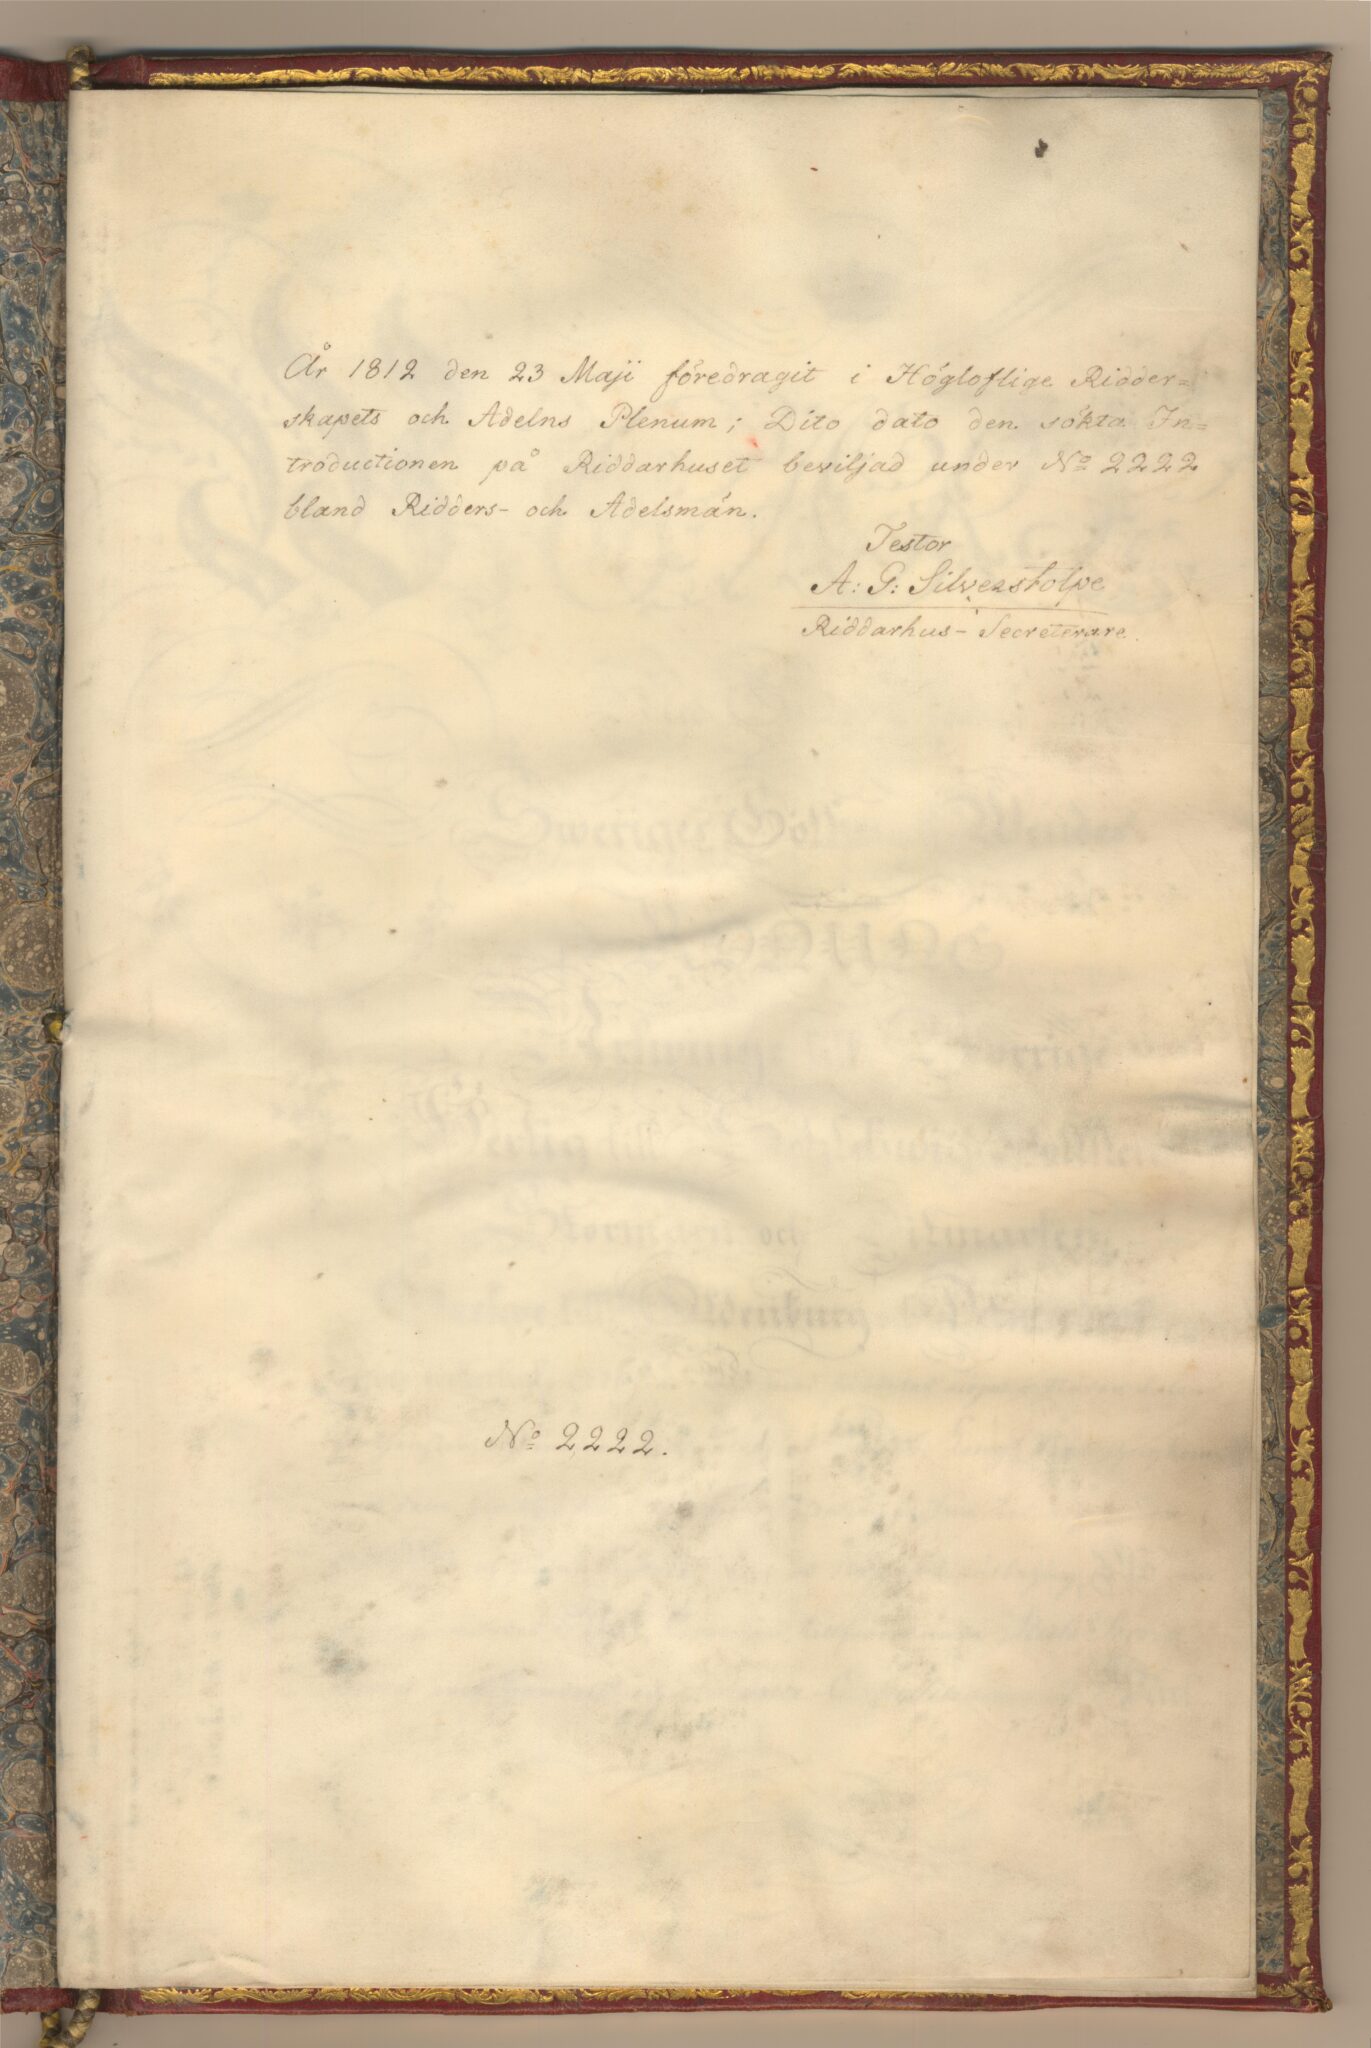 År 1812 den 23 Maji föredragit i Högloflige Ridder=
skapets och Adelns Plenum; Dito dato den sökta In=
troductionen på Riddarhuset beviljad under No 2222
bland Ridders- och Adelsmän.
Testor
A: G: Silverstolpe
Riddarhus- Secreterare.
No 2222.